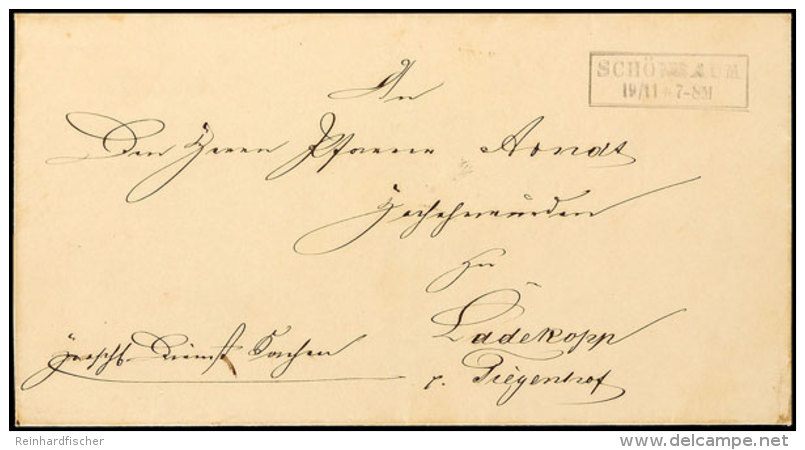 SCHÖNBAUM
19/11 * 7-8M
An
Den Herrn Pfarrer Arndt
Hochehrwürden
zu
Ladekopp
Dienst Sachen
p. Tiegenhof
Reinhardfischer
delcampe.net